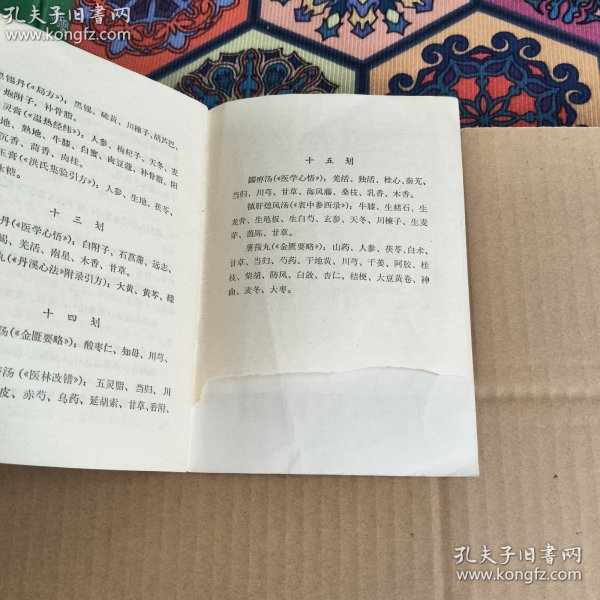 孔夫子旧书网
www.kongfz.com
孔夫子旧书网
www.kongfz.com
黑锡丹(《局方》):黑锡、硫黄、川楝子、胡芦巴、
炮附子,补骨脂、
灵膏(《温热经纬》):人参、枸杞子、天冬、麦
地、熟地、牛膝、白蜜、肉豆蔻、补骨脂、阳
沉香、茴香、肉桂。
玉膏(《洪氏集验引方》):人参、生地、茯苓、
冰糖。
十三划
丹(《医学心悟》):白附子、石菖蒲、远志、
蝎、羌活、南星、木香、甘草。
丸(《丹溪心法》附录引方):大黄、黄芩、礞
十四划
汤(《金匮要略》):酸枣仁、知母、川芎、
汤(《医林改错》):五灵脂、当归、川
皮、赤芍、乌药、延胡索、甘草、香附、
十五划
蠲痹汤(《医学心悟》):羌活、独活、桂心、秦艽、
当归、川芎、甘草、海风藤、桑枝、乳香、木香。
镇肝熄风汤(《衷中参西录》):牛膝、生赭石、生
龙骨、生龟板、生白芍、玄参、天冬、川楝子、生麦
芽、茵陈、甘草。
薯蓣丸(《金匮要略》):山药、人参、茯苓、白术、
甘草、当归、芍药、干地黄、川芎、干姜、阿胶、桂
枝、柴胡、防风、白敛、杏仁、桔梗、大豆黄卷、神
曲、麦冬、大枣。
孔夫子旧书网
www.kongfz.com